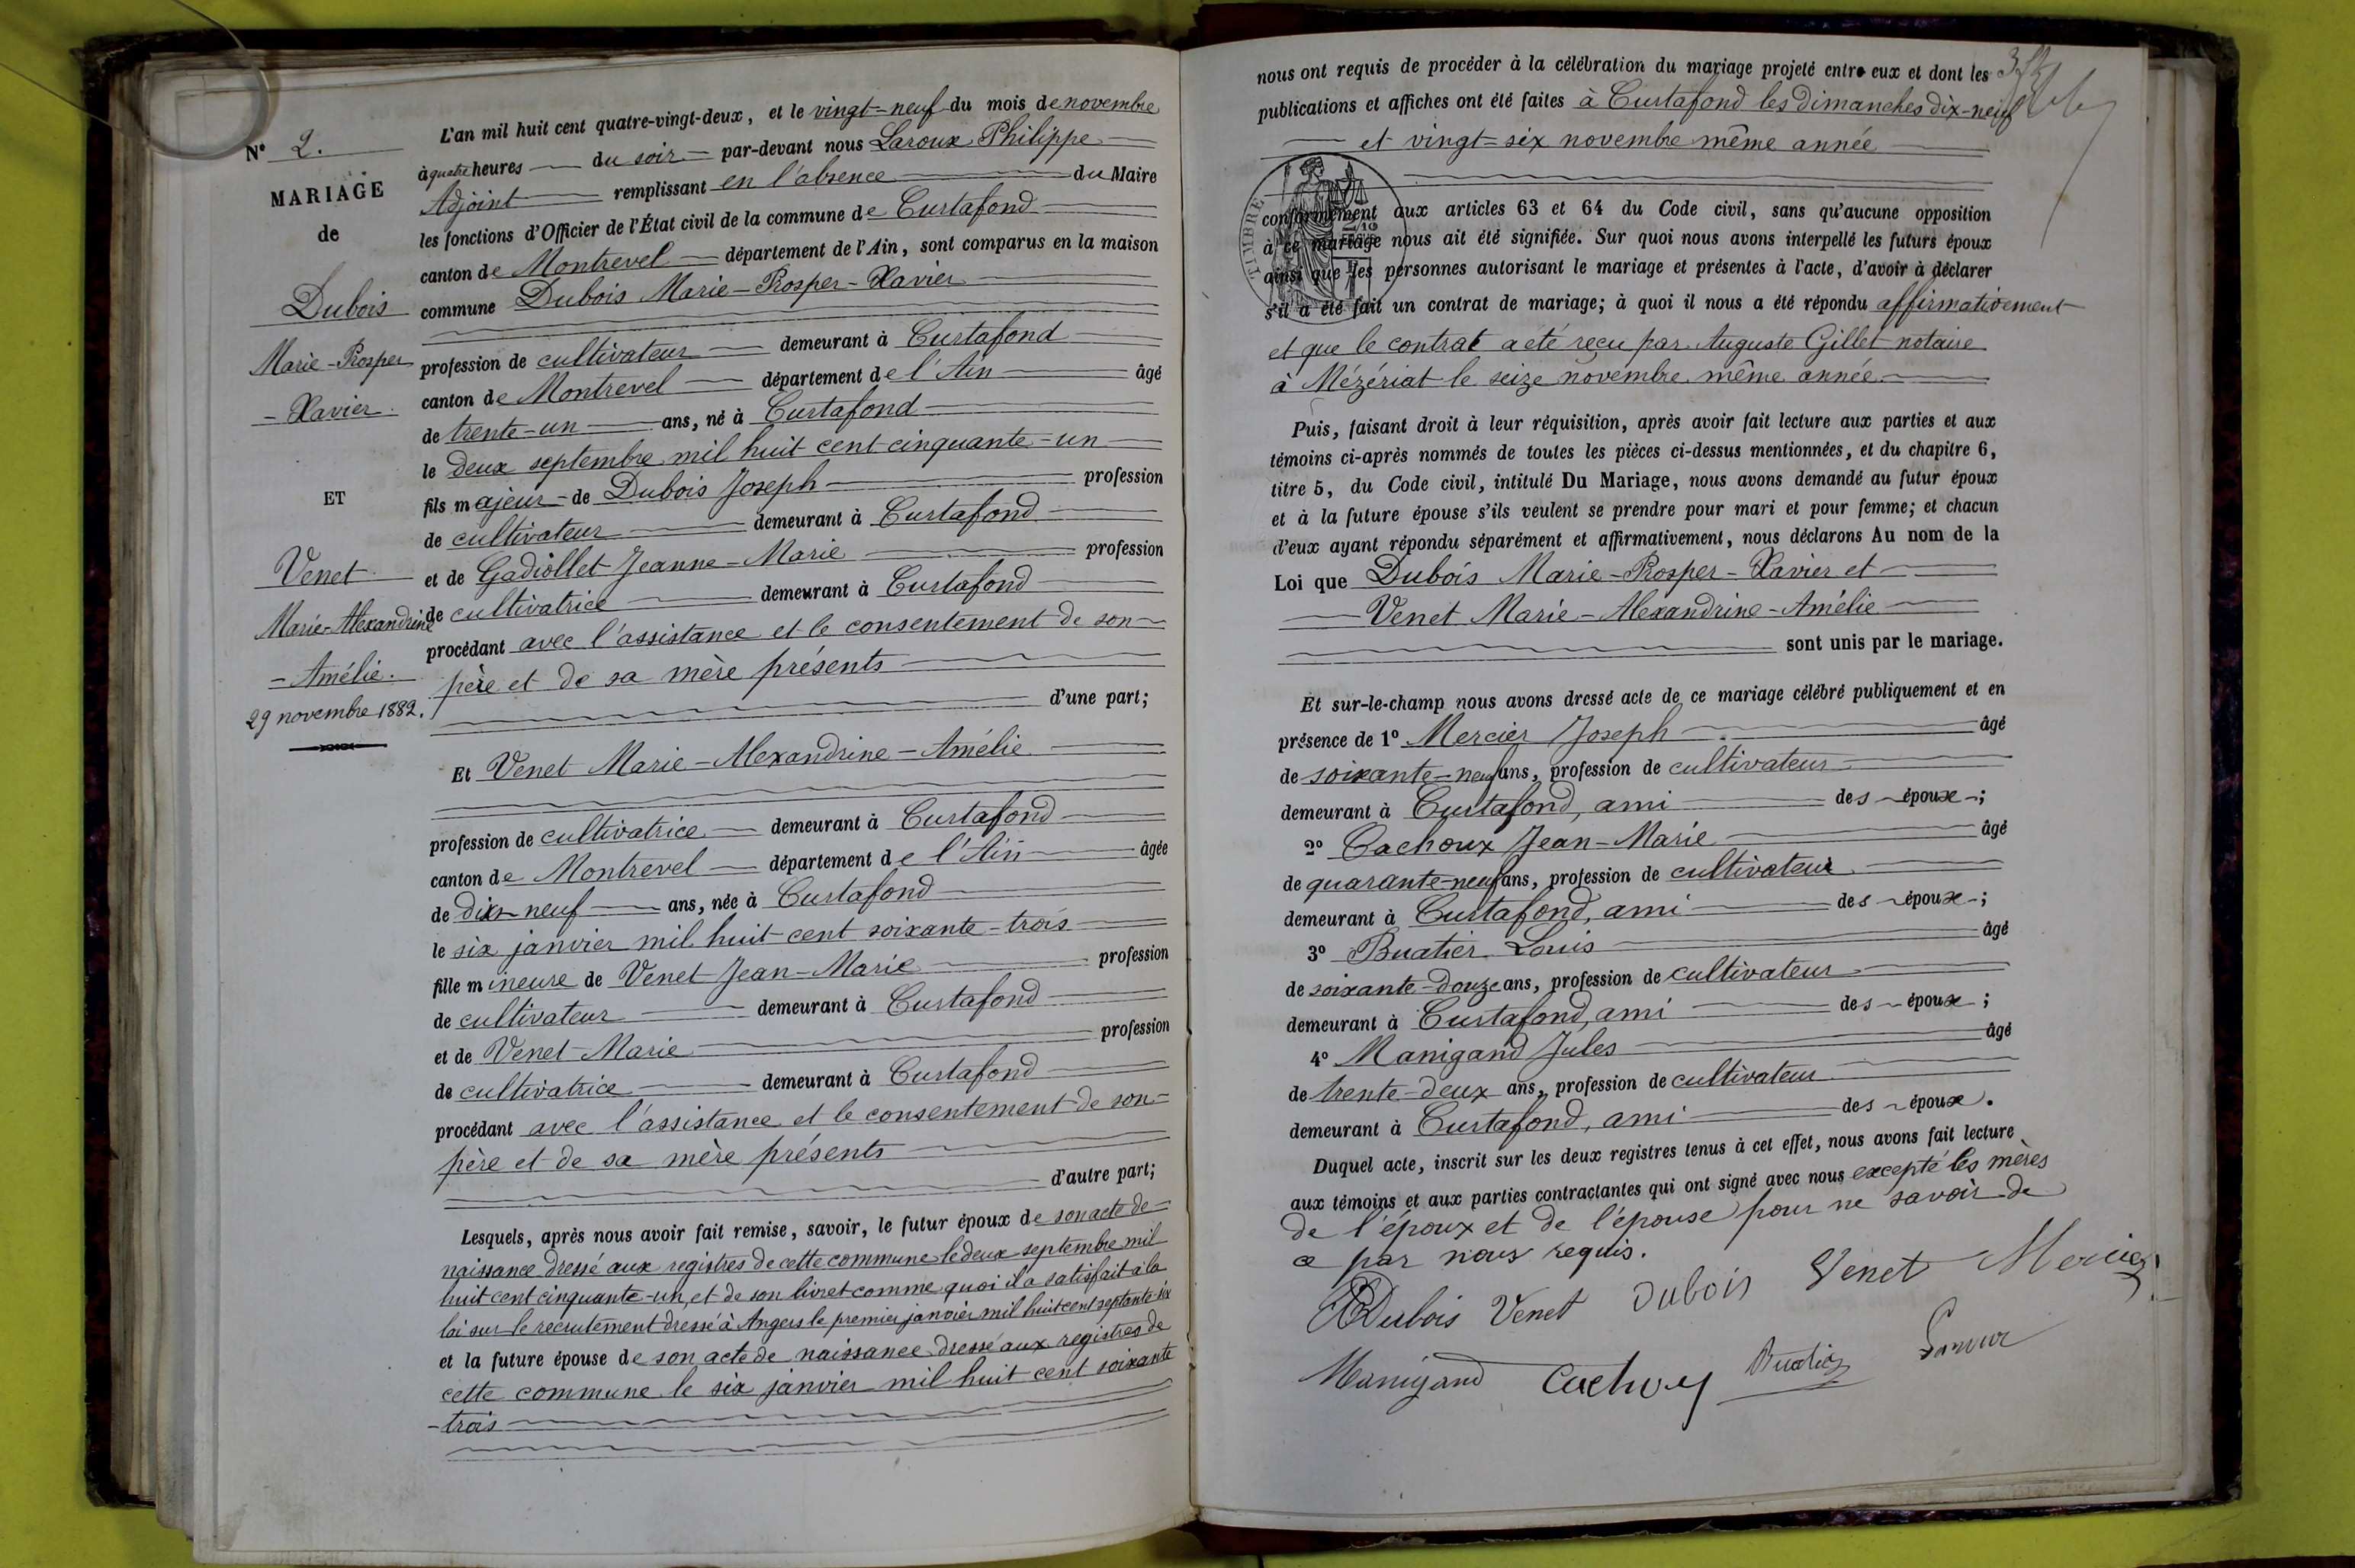 N° 2.
MARIAGE
de
Dubois
Marie-Prosper
-Xavier.
ET
Venet
Marie-Alexandrine
-Amélie.
29 novembre 1882.
L'an mil huit cent quatre-vingt-deux, et le vingt=neuf du mois de novembre
à quatre heures du soir par-devant nous Laroux Philippe
Adjoint remplissant en l'absence du Maire
les fonctions d'Officier de l'État civil de la commune de Curtafond
canton de Montrevel département de l'Ain, sont comparus en la maison
commune Dubois Marie-Prosper-Xavier
profession de cultivateur demeurant à Curtafond
canton de Montrevel département de l'Ain âgé
de trente-un ans, né à Curtafond
le deux septembre mil huit cent cinquante-un
fils majeur de Dubois Joseph profession
de cultivateur demeurant à Curtafond
et de Gadiollet Jeanne-Marie profession
de cultivatrice demeurant à Curtafond
procédant avec l'assistance et le consentement de son
père et de sa mère présents
d'une part;
Et Venet Marie-Alexandrine-Amélie
profession de cultivatrice demeurant à Curtafond
canton de Montrevel département de l'Ain âgée
de dix-neuf ans, née à Curtafond
le six janvier mil huit cent soixante-trois
fille mineure de Venet Jean-Marie profession
de cultivateur demeurant à Curtafond
et de Venet Marie profession
de cultivatrice demeurant à Curtafond
procédant avec l'assistance et le consentement de son
père et de sa mère présents
d'autre part;
Lesquels, après nous avoir fait remise, savoir, le futur époux de son acte de
naissance dressé aux registres de cette commune le deux septembre mil
huit cent cinquante-un, et de son livret comme quoi il a satisfait à la
loi sur le recrutement dressé à Angers le premier janvier mil huit cent septante-six
et la future épouse de son acte de naissance dressé aux registres de
cette commune le six janvier mil huit cent soixante
-trois
nous ont requis de procéder à la célébration du mariage projeté entre eux et dont les
publications et affiches ont été faites à Curtafond les dimanches dix-neuf
et vingt=six novembre même année
TIMBRE
conformément aux articles 63 et 64 du Code civil, sans qu'aucune opposition
à ce mariage nous ait été signifiée. Sur quoi nous avons interpellé les futurs époux
ainsi que les personnes autorisant le mariage et présentes à l'acte, d'avoir à déclarer
s'il a été fait un contrat de mariage; à quoi il nous a été répondu affirmativement
et que le contrat a été reçu par Auguste Gillet notaire
à Mézériat le seize novembre même année.
Puis, faisant droit à leur réquisition, après avoir fait lecture aux parties et aux
témoins ci-après nommés de toutes les pièces ci-dessus mentionnées, et du chapitre 6,
titre 5, du Code civil, intitulé Du Mariage, nous avons demandé au futur époux
et à la future épouse s'ils veulent se prendre pour mari et pour femme; et chacun
d'eux ayant répondu séparément et affirmativement, nous déclarons Au nom de la
Loi que Dubois Marie-Prosper-Xavier et
Venet Marie-Alexandrine-Amélie
sont unis par le mariage.
Et sur-le-champ nous avons dressé acte de ce mariage célébré publiquement et en
présence de 1° Mercier Joseph âgé
de soixante-neuf ans, profession de cultivateur
demeurant à Curtafond, ami des époux;
2° Cachoux Jean-Marie âgé
de quarante-neuf ans, profession de cultivateur
demeurant à Curtafond, ami des époux;
3° Buatier Louis âgé
de soixante-douze ans, profession de cultivateur
demeurant à Curtafond, ami des époux;
4° Manigand Jules âgé
de trente-deux ans, profession de cultivateur
demeurant à Curtafond, ami des époux.
Duquel acte, inscrit sur les deux registres tenus à cet effet, nous avons fait lecture
aux témoins et aux parties contractantes qui ont signé avec nous excepté les mères
de l'époux et de l'épouse pour ne savoir de
ce par nous requis.
Dubois Venet Dubois Venet Mercier
Manigand Cachoux Buatier